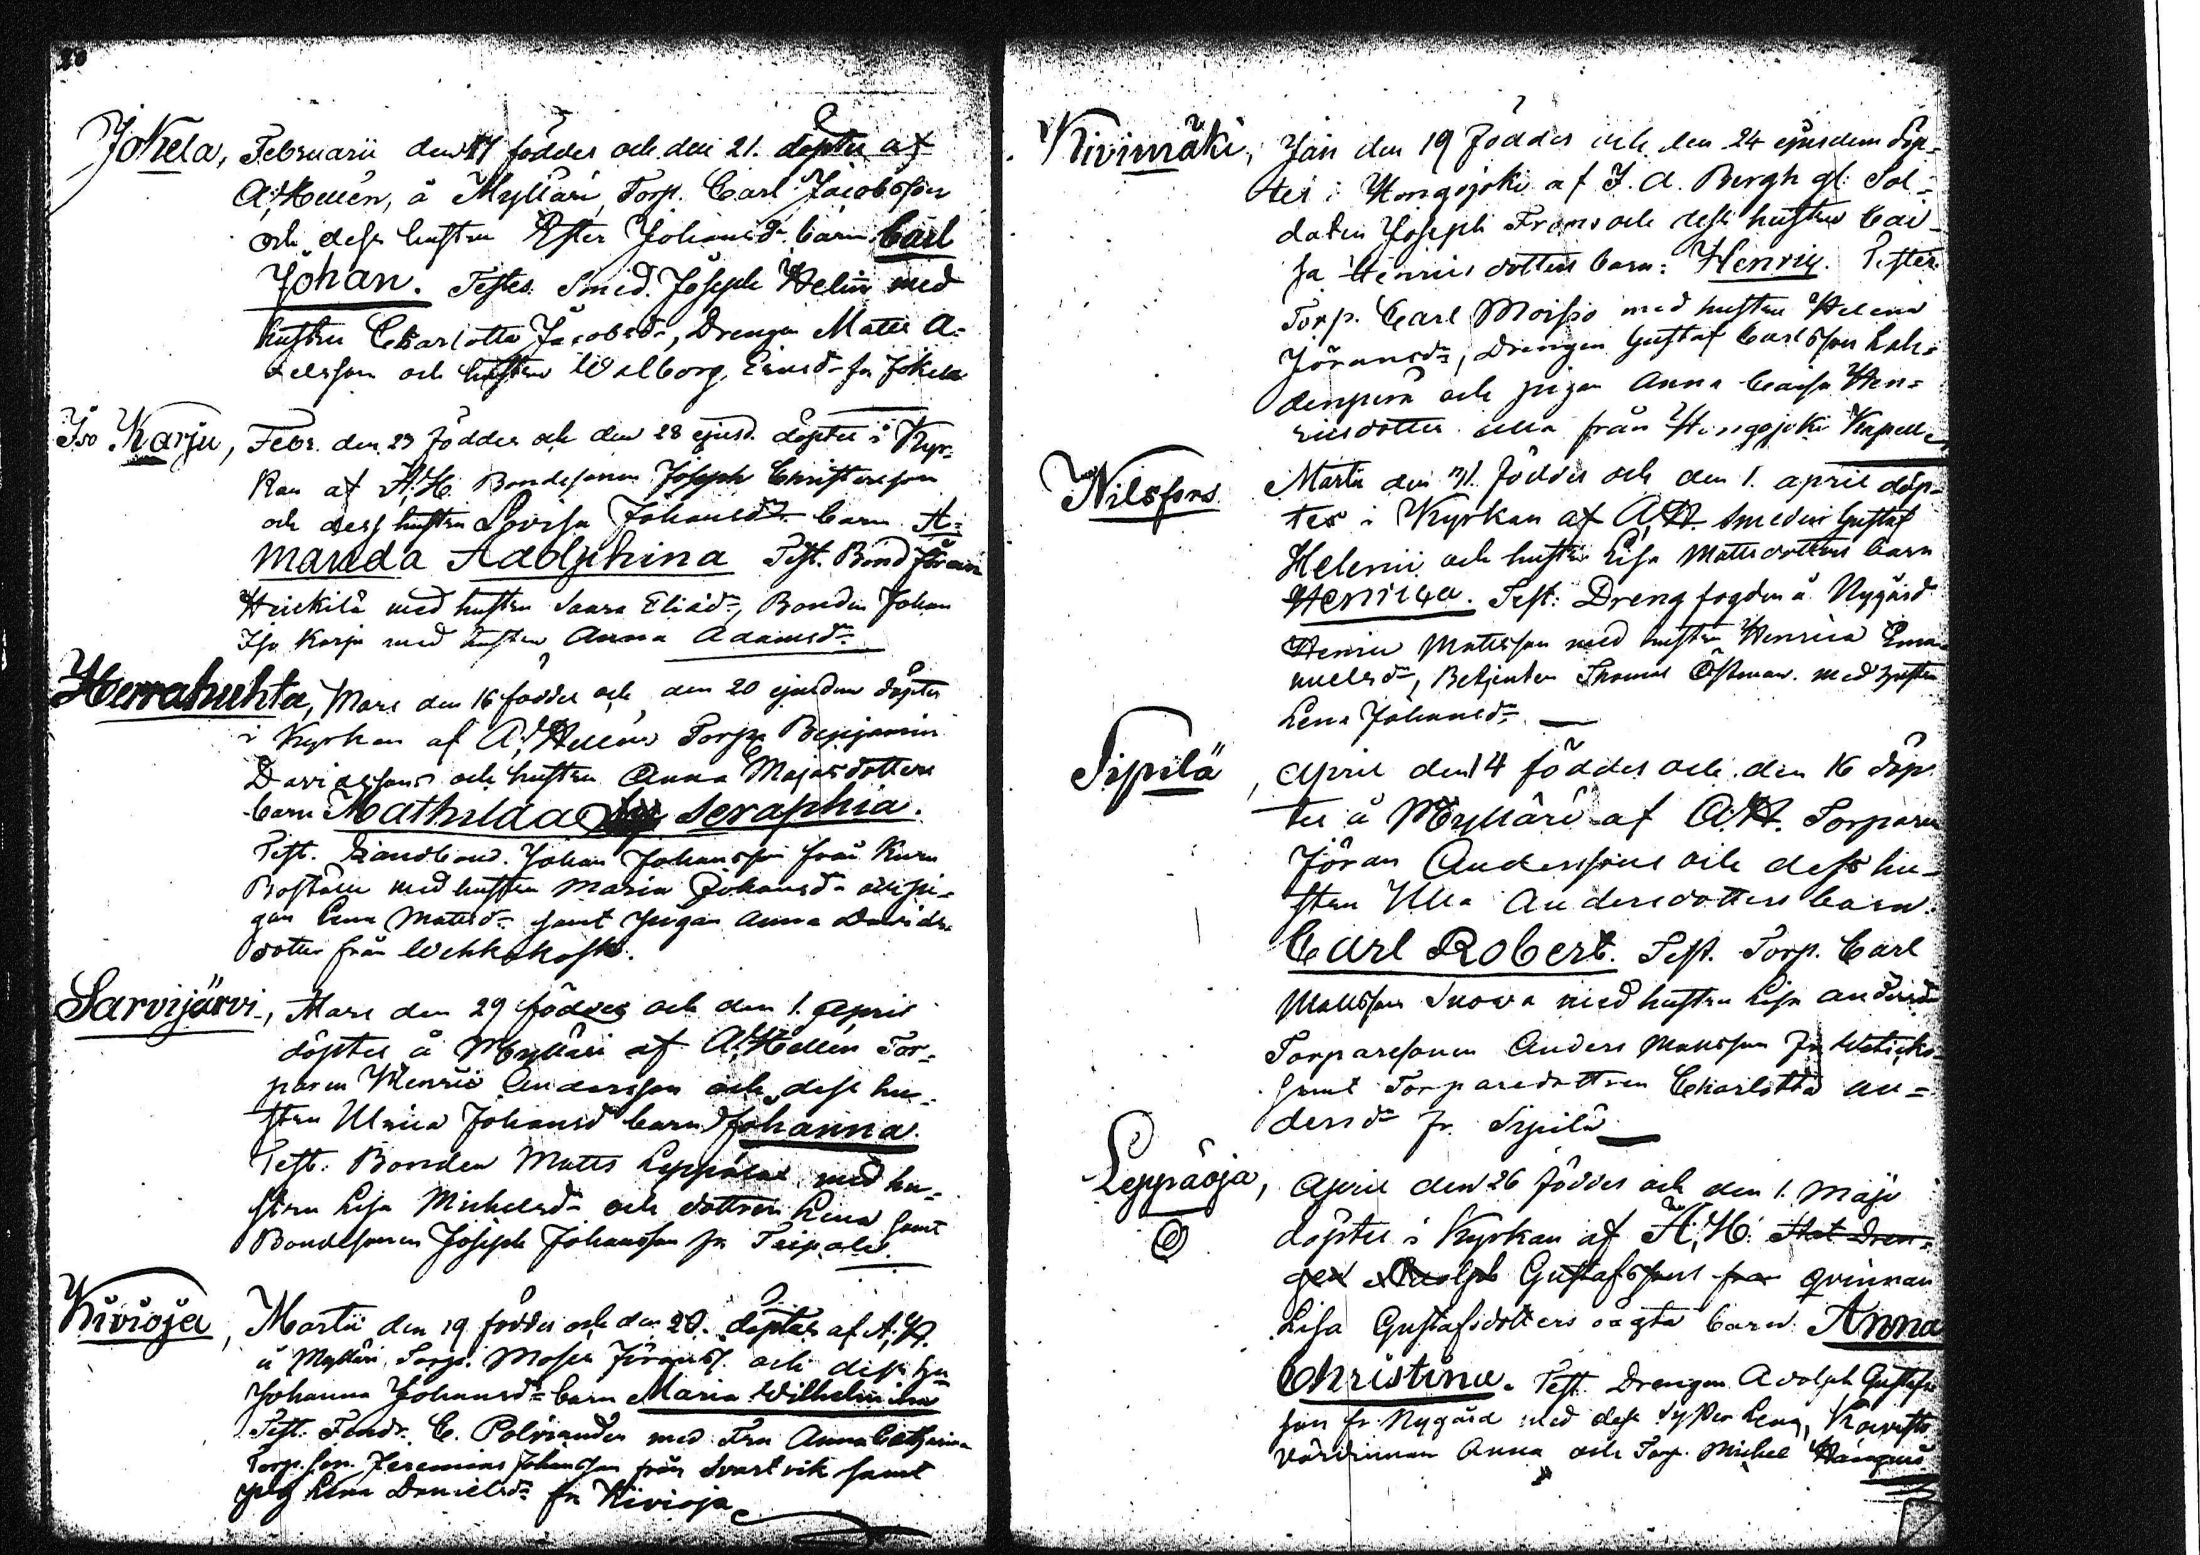 Jokela, Februarii den 17 föddes och den 21. döptes af
A. Hellén, å Mylläri, Torp. Carl Jacobsson
och dess hustru Ester Johansd:r barn Carl
Johan. Testes. Smed. Joseph Helin med
hustru Charlotta Jacobsd:r, Drengen Matts A-
 och hustru Walborg fr Jokela
Iso Karju, Febr. den 23 föddes och den 28 ejusd. döptes i Kyr-
kan af A. H. Bondesonen Joseph Christersson
och dess hustru Lovisa Johansd:r barn A-
manda Adolphina Test. Bond Jöran
Heickilä med hustru Saara Eliæd:r, Bonden Johan
Iso Karju med hustru Anna Adamsd:r
Herrahuhta, Mars den 16 föddes och den 20 ejusdem döptes
i Kyrkan af A. Hellén Torp. Benjamin
Davidssons och hustru Anna Majasdotters
barn Mathilda Seraphia.
Test. Landbond. Johan Johansson från Kurn
Boställe med hustru Maria Johansd:r och pi-
gan Lena Mattsd:r samt pigan Anna Davids-
dotter från Wehkakoski.
Sarvijärvi, Mars den 29 föddes och den 1. April
döptes å Mylläri af A. Hellén Tor-
paren Henric Andersson och dess hu-
stru Ulrica Johansd barn Johanna.
Test. Bonden Matts med hu-
stru Lisa Michelsd:r och dottren Lena samt
Bondesonen Joseph Johansson fr Taipale.
Kivioja, Martii den 19 föddes och den 20. döptes af A. H.
å Mylläri Torp. Moses Jöranss. och dess hu
Johanna Johansd:r barn Maria Wilhelmina
Test. Fendr. C. Polviander med Fru Anna Catharina
Torp. son. Jeremias Johansson från Svartvik samt
pig Lena Danielsd:r fr Kivioja
Kivimäki, Jan den 19 föddes och den 24 ejusdem döp-
tes i Hongojoki af J. A. Bergh gl. Sol-
daten Joseph Froms och dess hustru Cai-
sa Henricsdotters barn: Henric. Testes
Torp. Carl Moisio med hustru Helena
Jöransd:r, Drengen Gustaf Carlsson Lah-
denperä och pigan Anna Caisa Hen-
ricsdotter alla från Hongojoki Kapell
Nilsfors Martii den 31. föddes och den 1. april döp-
tes i Kyrkan af A. H. Smeden Gustaf
Helenii och hustru Lisa Mattsdotters barn
Henrica. Test: Drengfogden å Nygård
Henric Mattsson med hustru Henrica Ema-
nuelsd:r, Betjenten Thomas Östman med hustru
Lena Johansd:r
Sipilä, April den 14 föddes och den 16 döp-
tes å Mylläri af A. H. Torparen
Jöran Anderssons och dess hu-
stru Ulla Andersdotters barn:
Carl Robert. Test. Torp. Carl
Mattsson Suova med hustru Lisa Andersd
Torparesonen Anders Mattsson fr
samt Torparedottren Charlotta An-
dersd:r fr. Sipilä
Leppäoja, April den 26 föddes och den 1. Maji
döptes i Kyrkan af A. H. Stat Dren-
gen Adolph Gustafssons från qvinnan
Lisa Gustafsdotters oägta barn: Anna
Christina. Test. Drengen Adolph Gustafs-
son fr Nygård med dess syster Lena,
värdinnan Anna och Torp. Michel